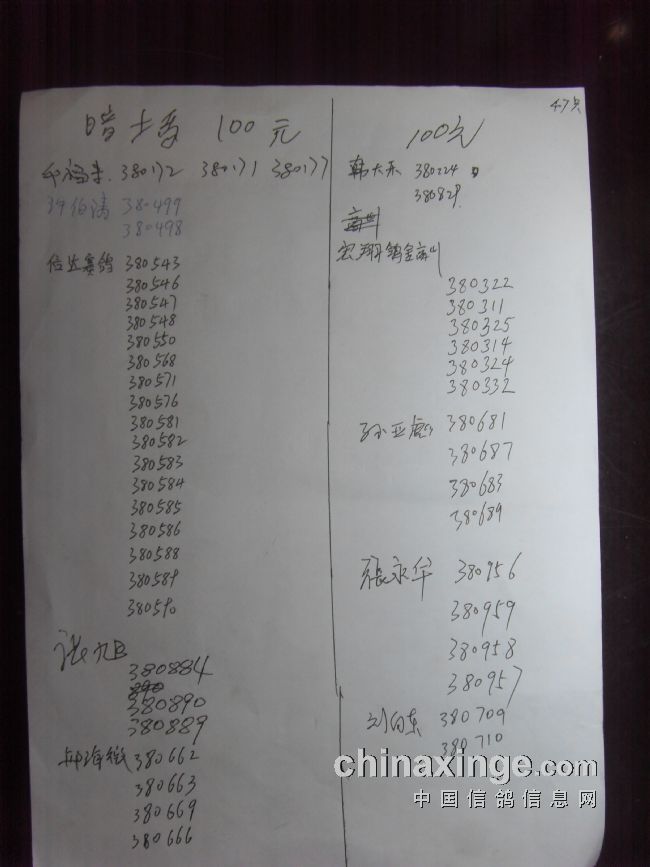 100元
380172 380171 380177
380499
380498
信达赛鸽 380543
380546
380547
380548
380550
380568
380571
380576
380581
380582
380583
380584
380585
380586
380588
380589
380590
张旭
380884
380890
380889
380662
380663
380669
380666
47只
100元
韩大东 380224
380829
宏翔鸽舍
380322
380311
380325
380314
380324
380332
孙亚虎 380681
380687
380683
380689
張永华 380956
380959
380958
380957
刘向东 380709
380710
chinaxinge.com
中国信鸽信息网